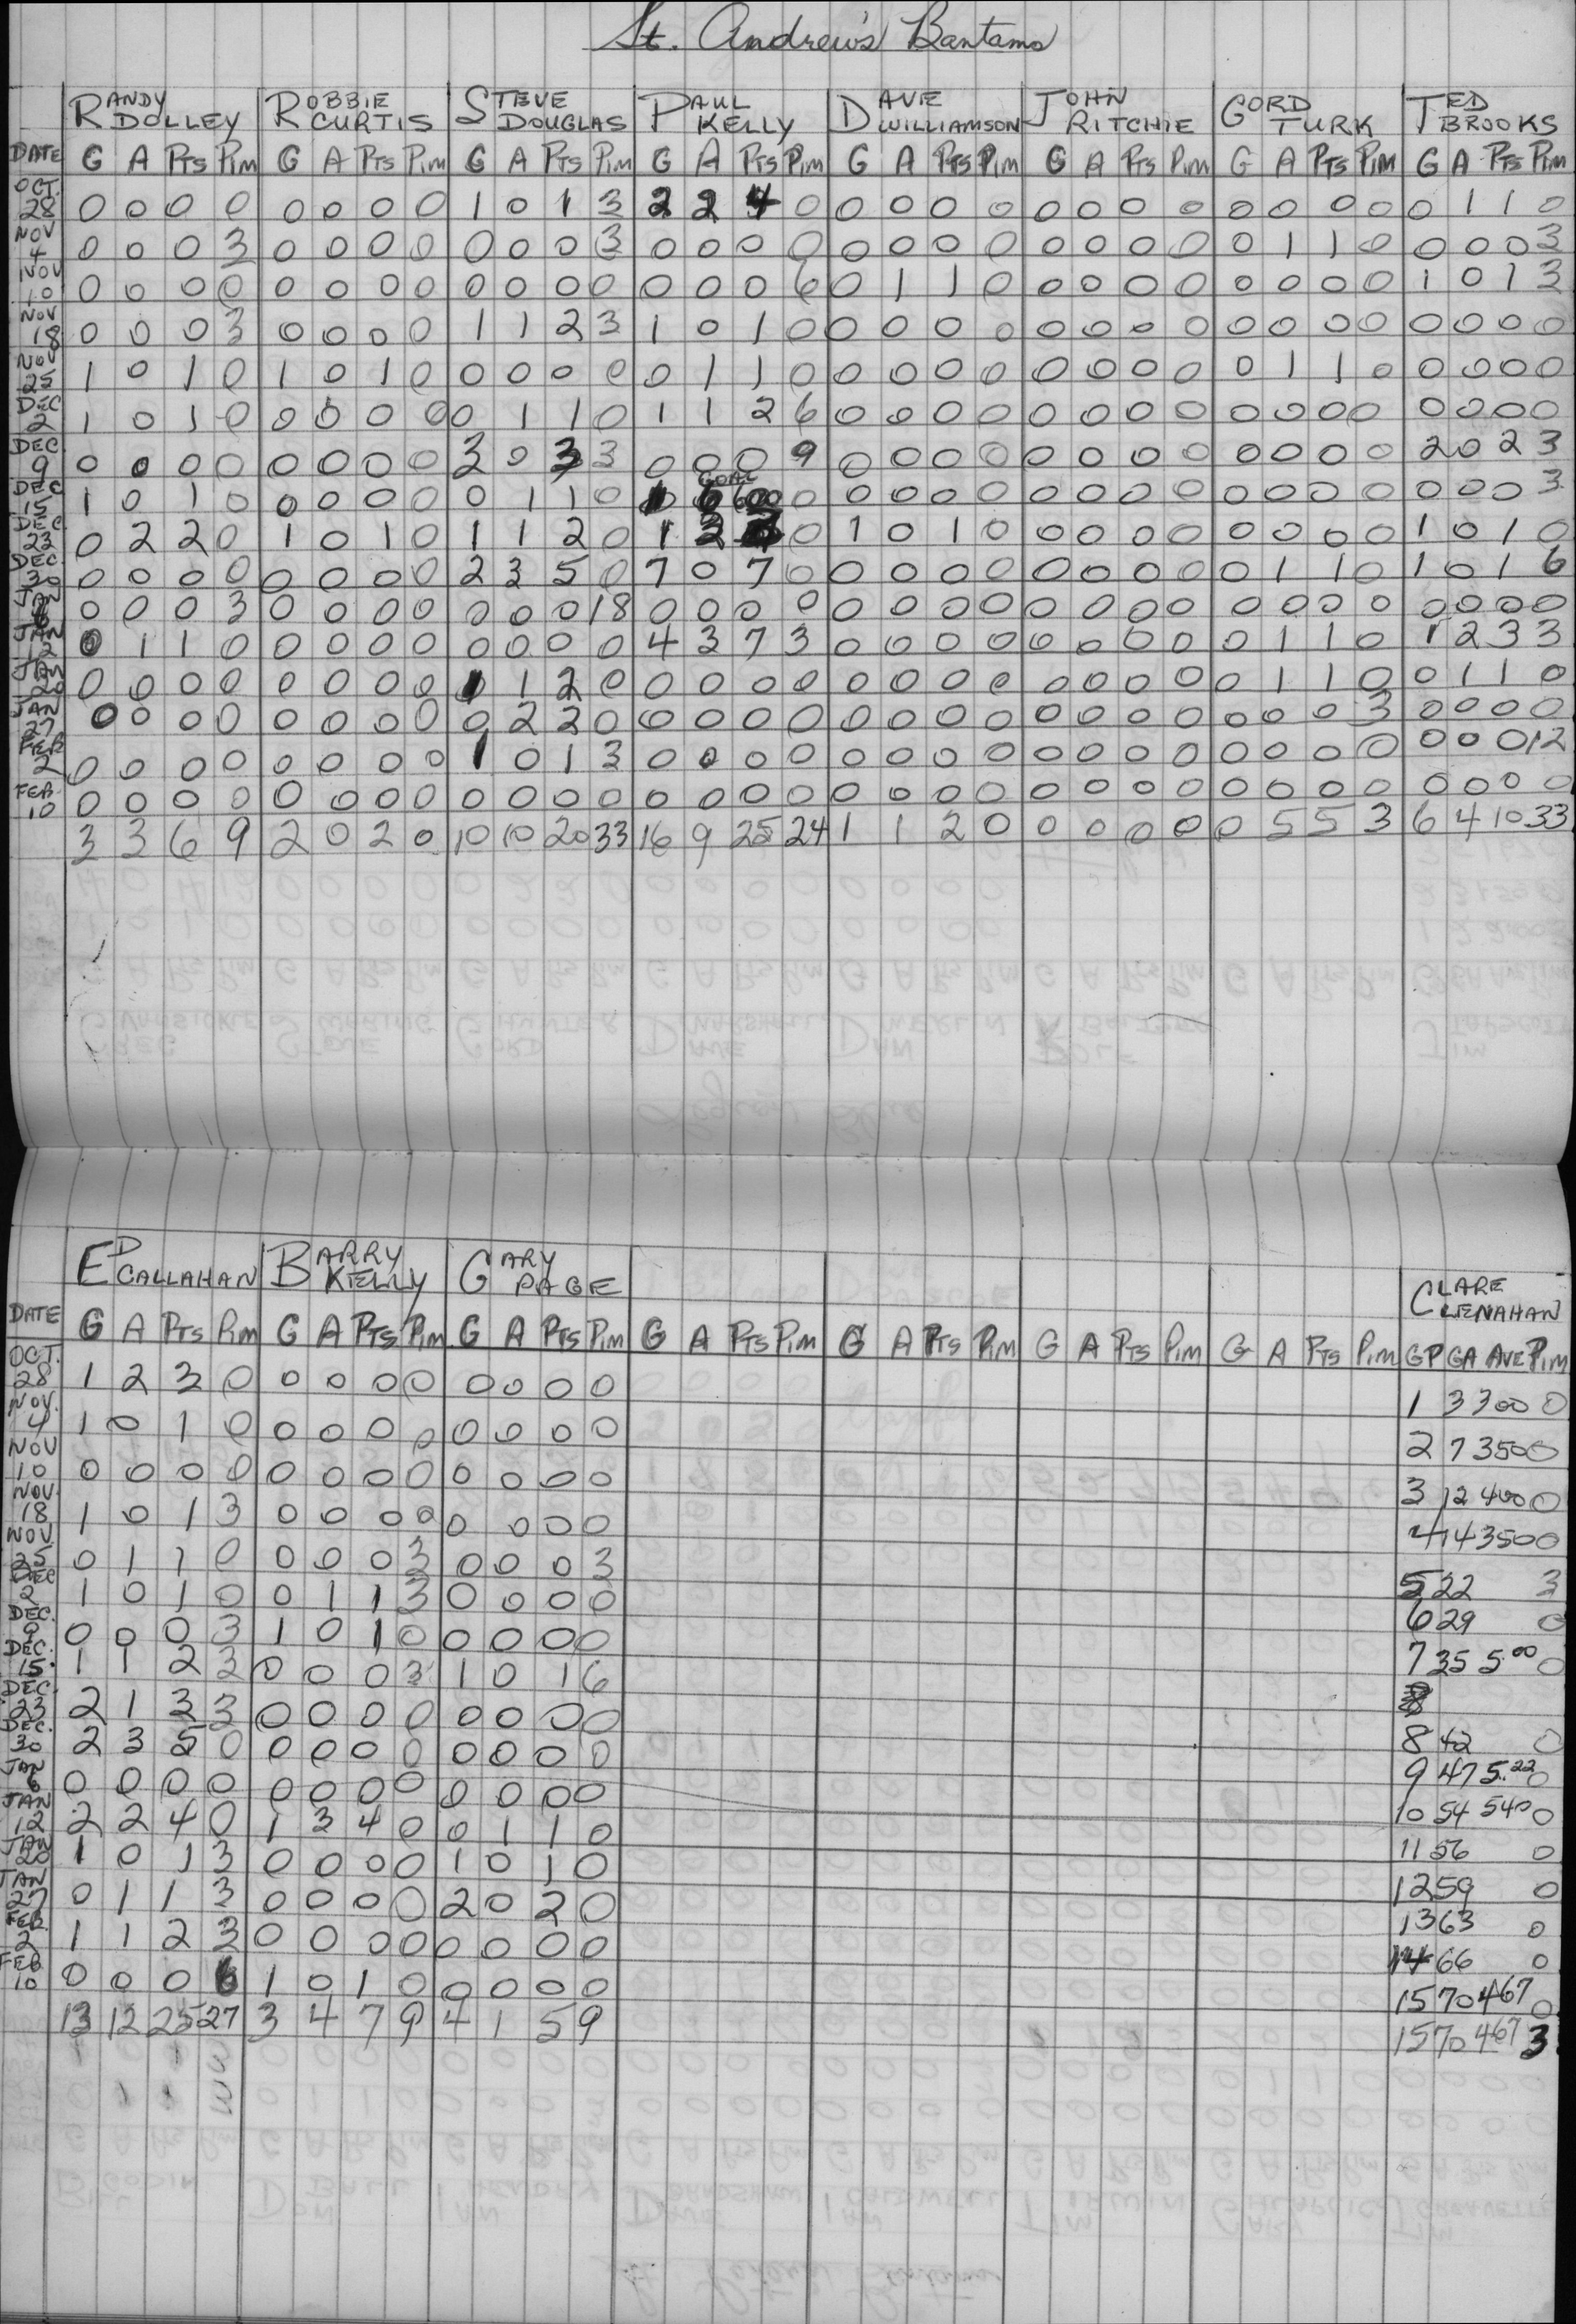 St. Andrew's Bantams
RANDY DOLLEY ROBBIE CURTIS STEVE DOUGLAS PAUL KELLY DAVE WILLIAMSON JOHN RITCHIE GORD TURK TED BROOKS
DATE G A PTS PIM G A PTS PIM G A PTS PIM G A PTS PIM G A PTS PIM G A PTS PIM G A PTS PIM G A PTS PIM
OCT. 28 0 0 0 0 0 0 0 0 1 0 1 3 2 2 4 0 0 0 0 0 0 0 0 0 0 0 0 0 0 1 1 0
NOV 4 0 0 0 3 0 0 0 0 0 0 0 3 0 0 0 0 0 0 0 0 0 0 0 0 0 1 1 0 0 0 0 3
NOV 10 0 0 0 0 0 0 0 0 0 0 0 0 0 0 0 6 0 1 1 0 0 0 0 0 0 0 0 0 1 0 1 3
NOV 18 0 0 0 3 0 0 0 0 1 1 2 3 1 0 1 0 0 0 0 0 0 0 0 0 0 0 0 0 0 0 0 0
NOV 25 1 0 1 0 1 0 1 0 0 0 0 0 0 1 1 0 0 0 0 0 0 0 0 0 0 1 1 0 0 0 0 0
DEC 2 1 0 1 0 0 0 0 0 0 1 1 0 1 1 2 6 0 0 0 0 0 0 0 0 0 0 0 0 0 0 0 0
DEC. 9 0 0 0 0 0 0 0 0 3 0 3 3 0 0 0 9 0 0 0 0 0 0 0 0 0 0 0 0 2 0 2 3
DEC 15 1 0 1 0 0 0 0 0 0 1 1 0 GOAL 1 6 600 0 0 0 0 0 0 0 0 0 0 0 0 0 0 0 0 3
DEC 23 0 2 2 0 1 0 1 0 1 1 2 0 1 2 0 1 0 1 0 0 0 0 0 0 0 0 0 1 0 1 0
DEC. 30 0 0 0 0 0 0 0 0 2 3 5 0 7 0 7 0 0 0 0 0 0 0 0 0 0 1 1 0 1 0 1 6
JAN 6 0 0 0 3 0 0 0 0 0 0 0 18 0 0 0 0 0 0 0 0 0 0 0 0 0 0 0 0 0 0 0 0
JAN 12 0 1 1 0 0 0 0 0 0 0 0 0 4 3 7 3 0 0 0 0 0 0 0 0 0 1 1 0 1 2 3 3
JAN 20 0 0 0 0 0 0 0 0 1 1 2 0 0 0 0 0 0 0 0 0 0 0 0 0 0 1 1 0 0 1 1 0
JAN 27 0 0 0 0 0 0 0 0 0 2 2 0 0 0 0 0 0 0 0 0 0 0 0 0 0 0 0 3 0 0 0 0
FEB 2 0 0 0 0 0 0 0 0 1 0 1 3 0 0 0 0 0 0 0 0 0 0 0 0 0 0 0 0 0 0 0 12
FEB. 10 0 0 0 0 0 0 0 0 0 0 0 0 0 0 0 0 0 0 0 0 0 0 0 0 0 0 0 0 0 0 0 0
3 3 6 9 2 0 2 0 10 10 20 33 16 9 25 24 1 1 2 0 0 0 0 0 0 5 5 3 6 4 10 33
ED CALLAHAN BARRY KELLY GARY PAGE CLARE CLENAHAN
DATE G A PTS PIM G A PTS PIM G A PTS PIM G A PTS PIM G A PTS PIM G A PTS PIM G A PTS PIM GP GA AVE PIM
OCT. 28 1 2 3 0 0 0 0 0 0 0 0 0 1 3 300 0
NOV. 4 1 0 1 0 0 0 0 0 0 0 0 0 2 7 350 0
NOV 10 0 0 0 0 0 0 0 0 0 0 0 0 3 12 400 0
NOV. 18 1 0 1 3 0 0 0 0 0 0 0 0 4 14 350 0
NOV 25 0 1 1 0 0 0 0 3 0 0 0 3 5 22 3
DEC 2 1 0 1 0 0 1 1 3 0 0 0 0 6 29 0
DEC. 9 0 0 0 3 1 0 1 0 0 0 0 0 7 35 5.00 0
DEC. 15 1 1 2 3 0 0 0 3 1 0 1 6
DEC. 23 2 1 3 3 0 0 0 0 0 0 0 0 8 42 0
DEC. 30 2 3 5 0 0 0 0 0 0 0 0 0 9 47 5.22 0
JAN 6 0 0 0 0 0 0 0 0 0 0 0 0 10 54 540 0
JAN 12 2 2 4 0 1 3 4 0 0 1 1 0 11 56 0
JAN 20 1 0 1 3 0 0 0 0 1 0 1 0 12 59 0
JAN 27 0 1 1 3 0 0 0 0 2 0 2 0 13 63 0
FEB. 2 1 1 2 3 0 0 0 0 0 0 0 0 14 66 0
FEB 10 0 0 0 6 1 0 1 0 0 0 0 0 15 70 467 0
13 12 25 27 3 4 7 9 4 1 5 9 15 70 467 3